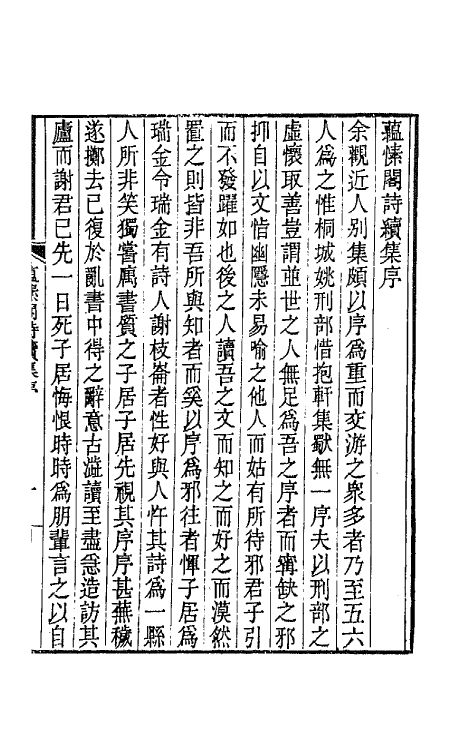 蘊愫閣詩續集序
余觀近人別集頗以序爲重而交游之衆多者乃至五六
人爲之惟桐城姚刑部惜抱軒集獨無一序夫以刑部之
虛懷取善豈謂並世之人無足爲吾之序者而寧缺之邪
抑自以文恉幽隱未易喻之他人而姑有所待邪君子引
而不發躍如也後之人讀吾之文而知之而好之而漠然
置之則皆非吾所與知者而奚以序爲邪往者惲子居爲
瑞金令瑞金有詩人謝枝崙者性好與人忤其詩爲一縣
人所非笑獨嘗寓書質之子居子居先視其序序甚蕪穢
遂擲去已復於亂書中得之辭意古澁讀至盡急造訪其
廬而謝君已先一日死子居悔恨時時爲朋輩言之以自
蘊愫閣詩續集序
一